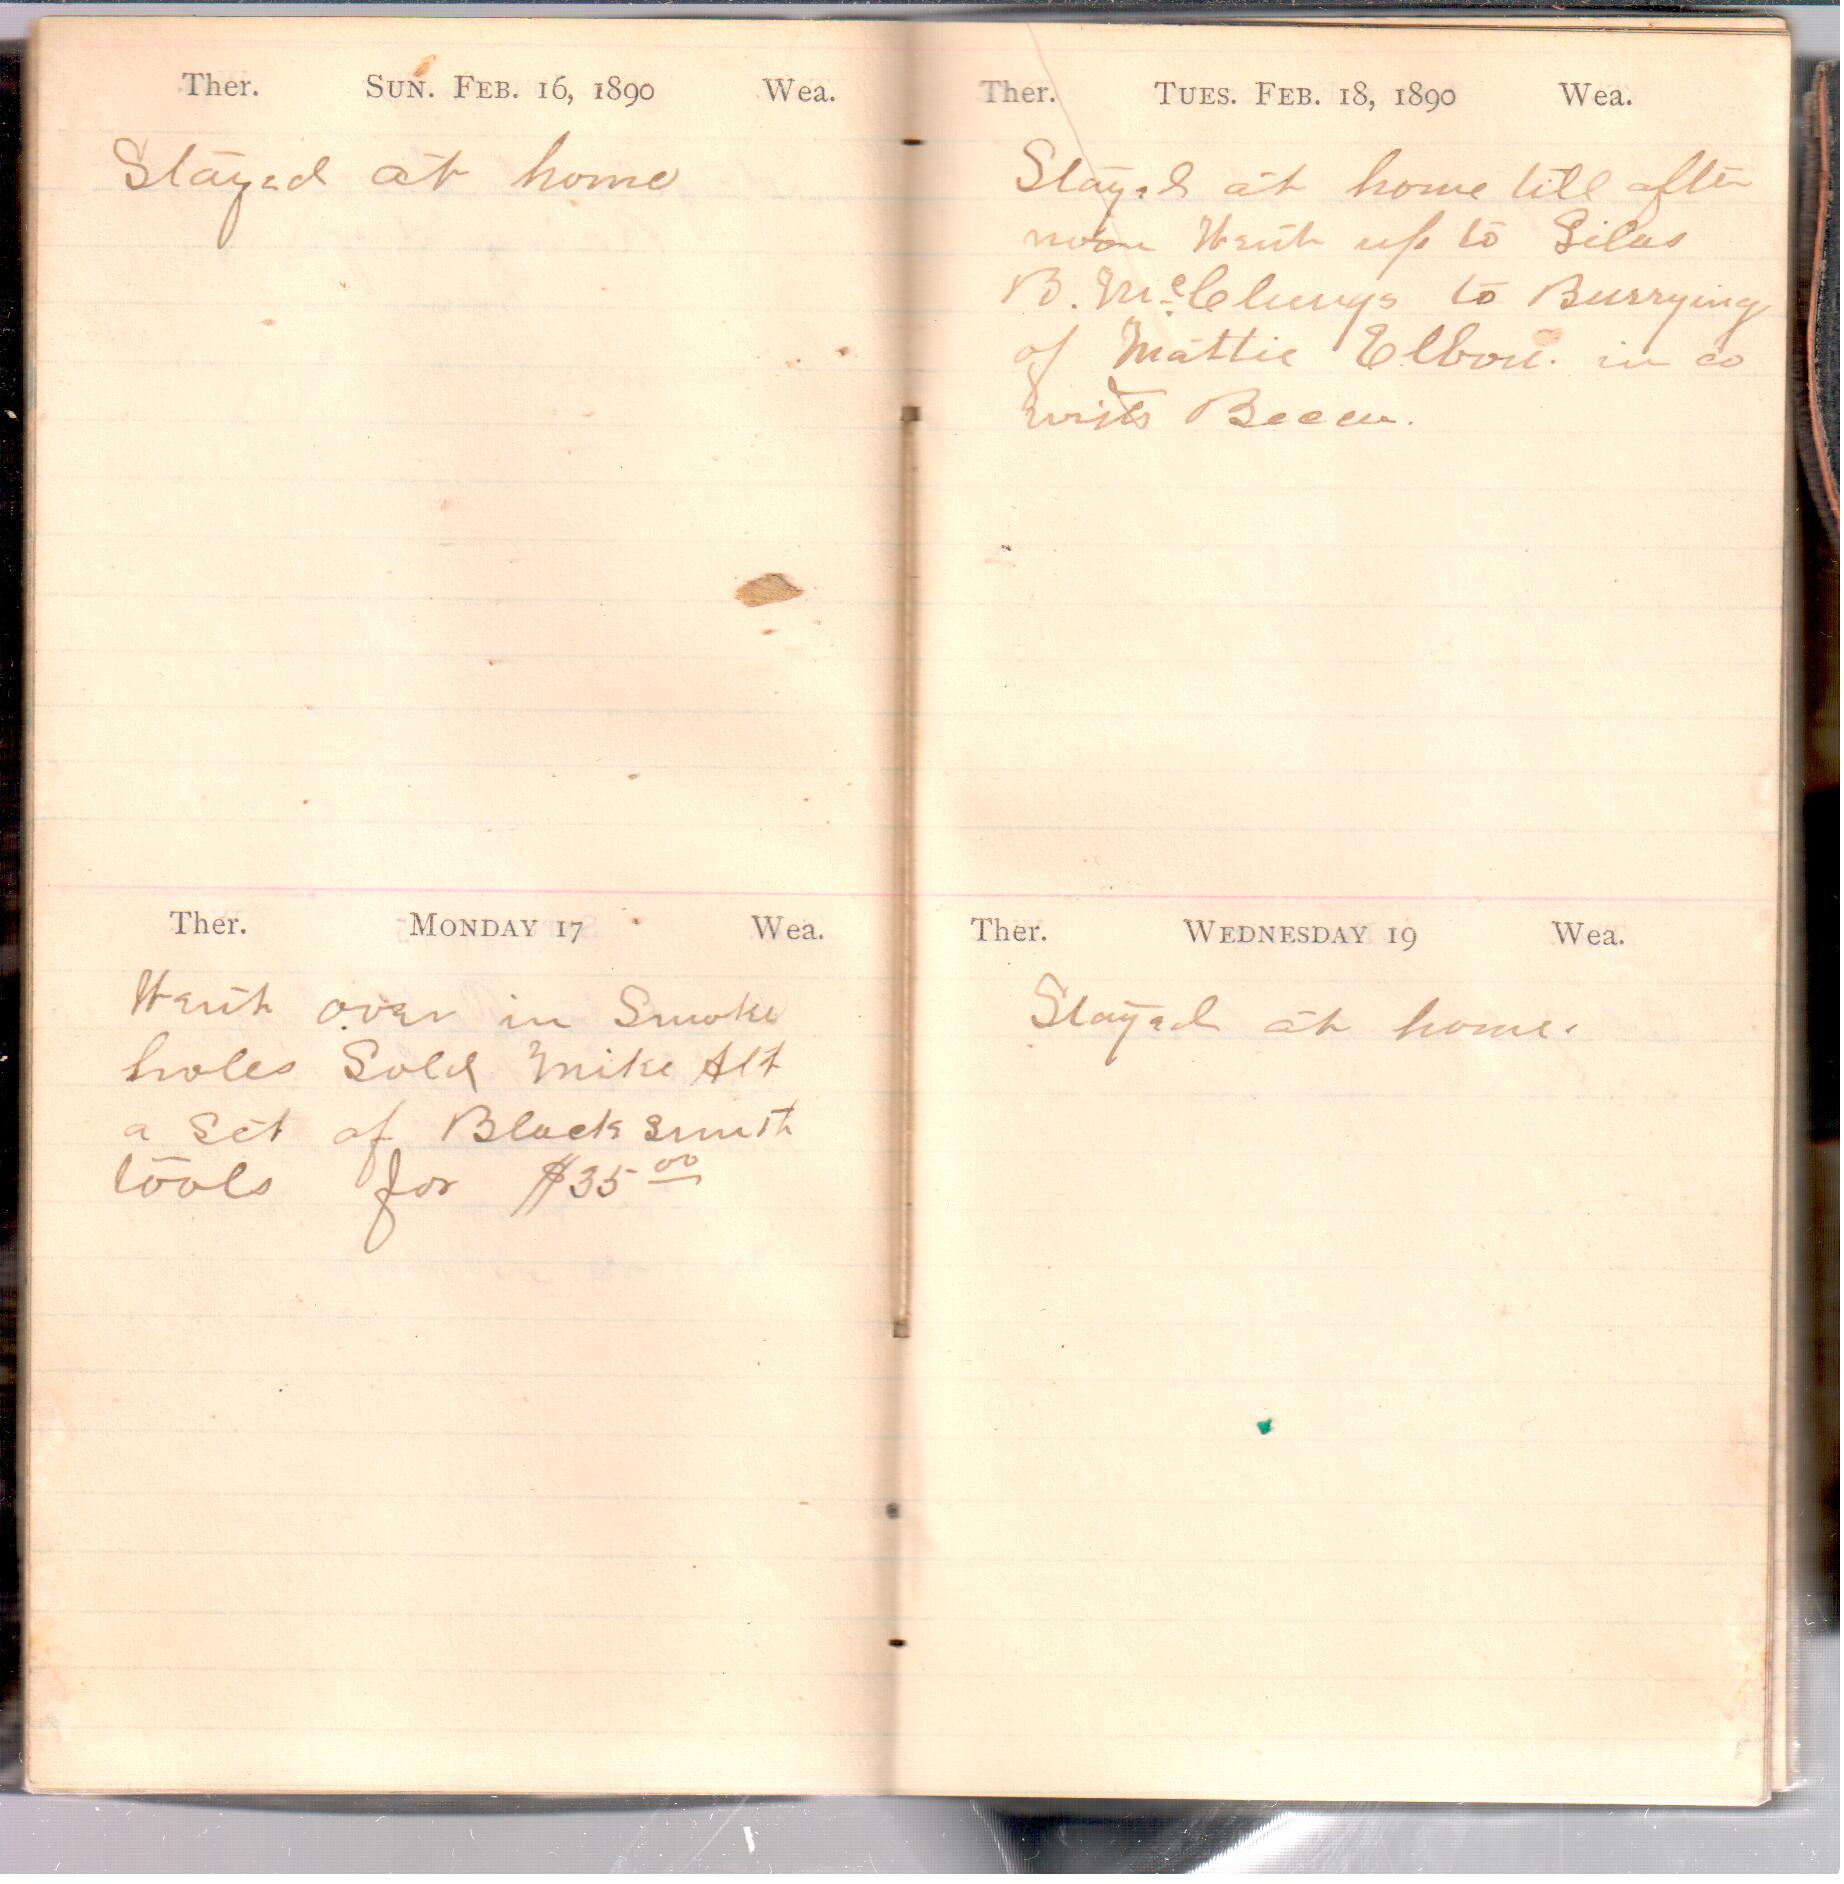 Ther. SUN. FEB. 16, 1890 Wea.
Stayed at home
Ther. MONDAY 17 Wea.
Went over in Smoke
holes Sold Mike Alt
a Set of Black smith
tools for $35 00
Ther. TUES. FEB. 18, 1890 Wea.
Stayed at home till after
noon Went up to Silas
B. McClungs to Burrying
of Mattie Elbon. in co
with
Ther. WEDNESDAY 19 Wea.
Stayed at home.